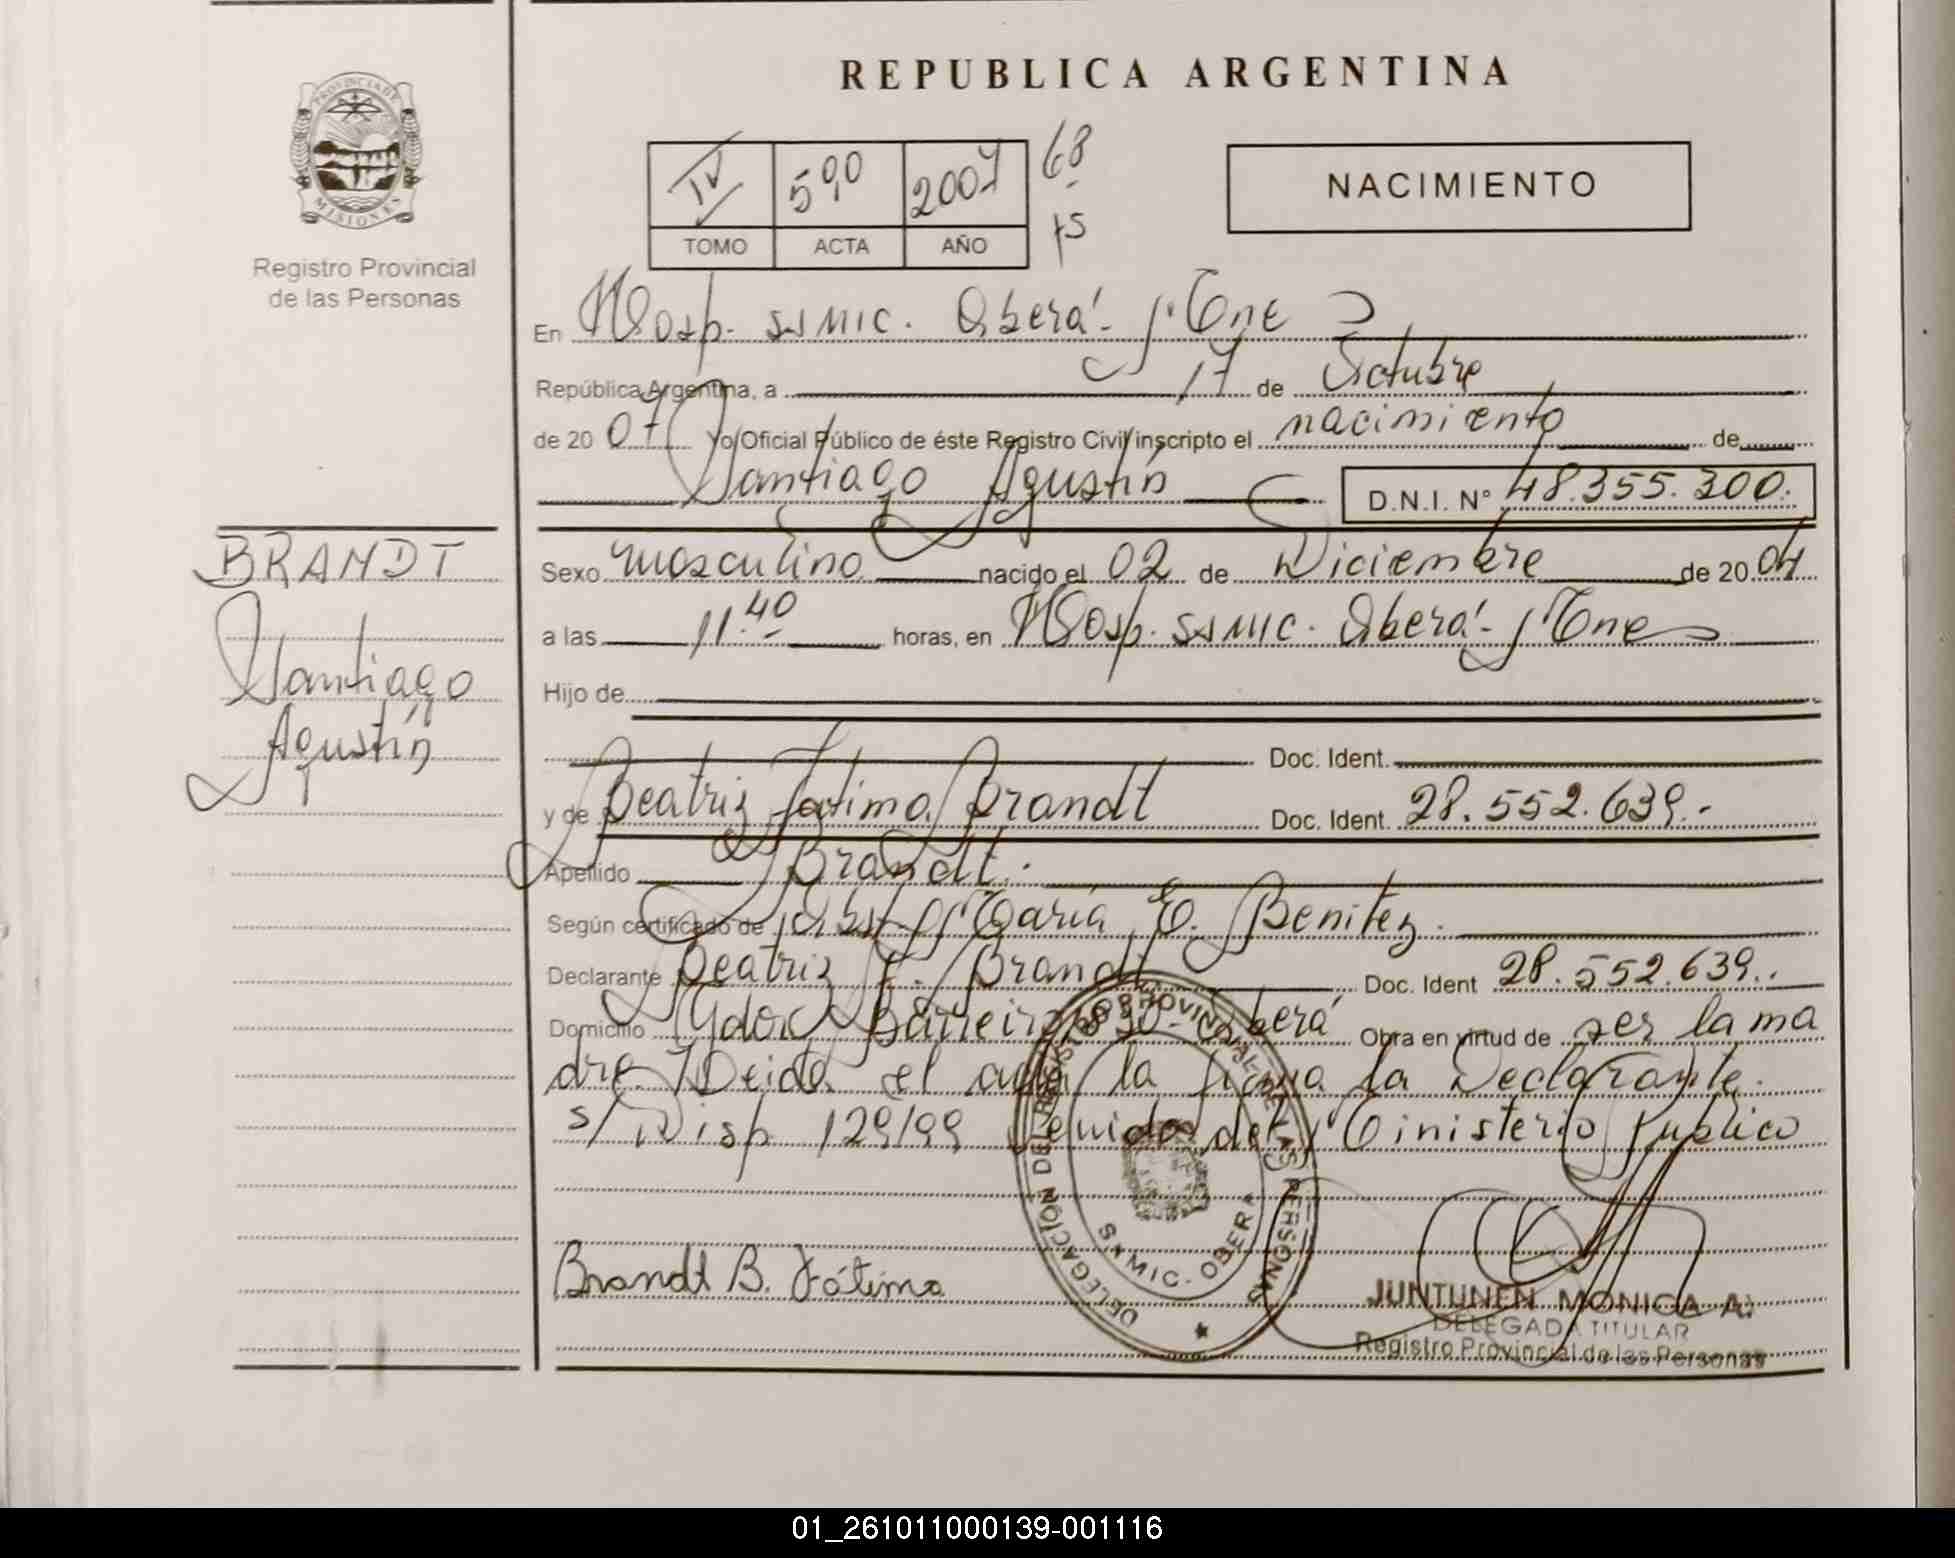 REPUBLICA ARGENTINA
PROVINCIA DE
MISIONES
Registro Provincial
de las Personas
IV 590 2007 68
TOMO ACTA AÑO 75
NACIMIENTO
En Hosp. SSMIC. Oberá- Mnes
República Argentina, a 17 de Octubre
de 20 07 Yo Oficial Público de éste Registro Civil inscripto el nacimiento de
Santiago Agustín D.N.I. N° 48.355.300.
BRANDT
Santiago
Agustín
Sexo masculino nacido el 02 de Diciembre de 20 04
a las 11.40 horas, en Hosp. SSMIC. Oberá- Mnes
Hijo de
Doc. Ident.
y de Beatriz Fatima Brandt Doc. Ident. 28.552.639.-
Apellido Brandt.
Según certificado de Obst. María E. Benitez.
Declarante Beatriz F. Brandt Doc. Ident 28.552.639..
Domicilio Barreiro Oberá Obra en virtud de ser la ma
dre. Leida el acta la firma la Declarante.
s/ Disp 129/99 del Ministerio Publico
DELEGACION DEL REGISTRO PROVINCIAL DE LAS PERSONAS
S*MIC. OBERA
Brandt B. Fátima
JUNTUNEN MONICA A.
DELEGADA TITULAR
Registro Provincial de las Personas
01_261011000139-001116